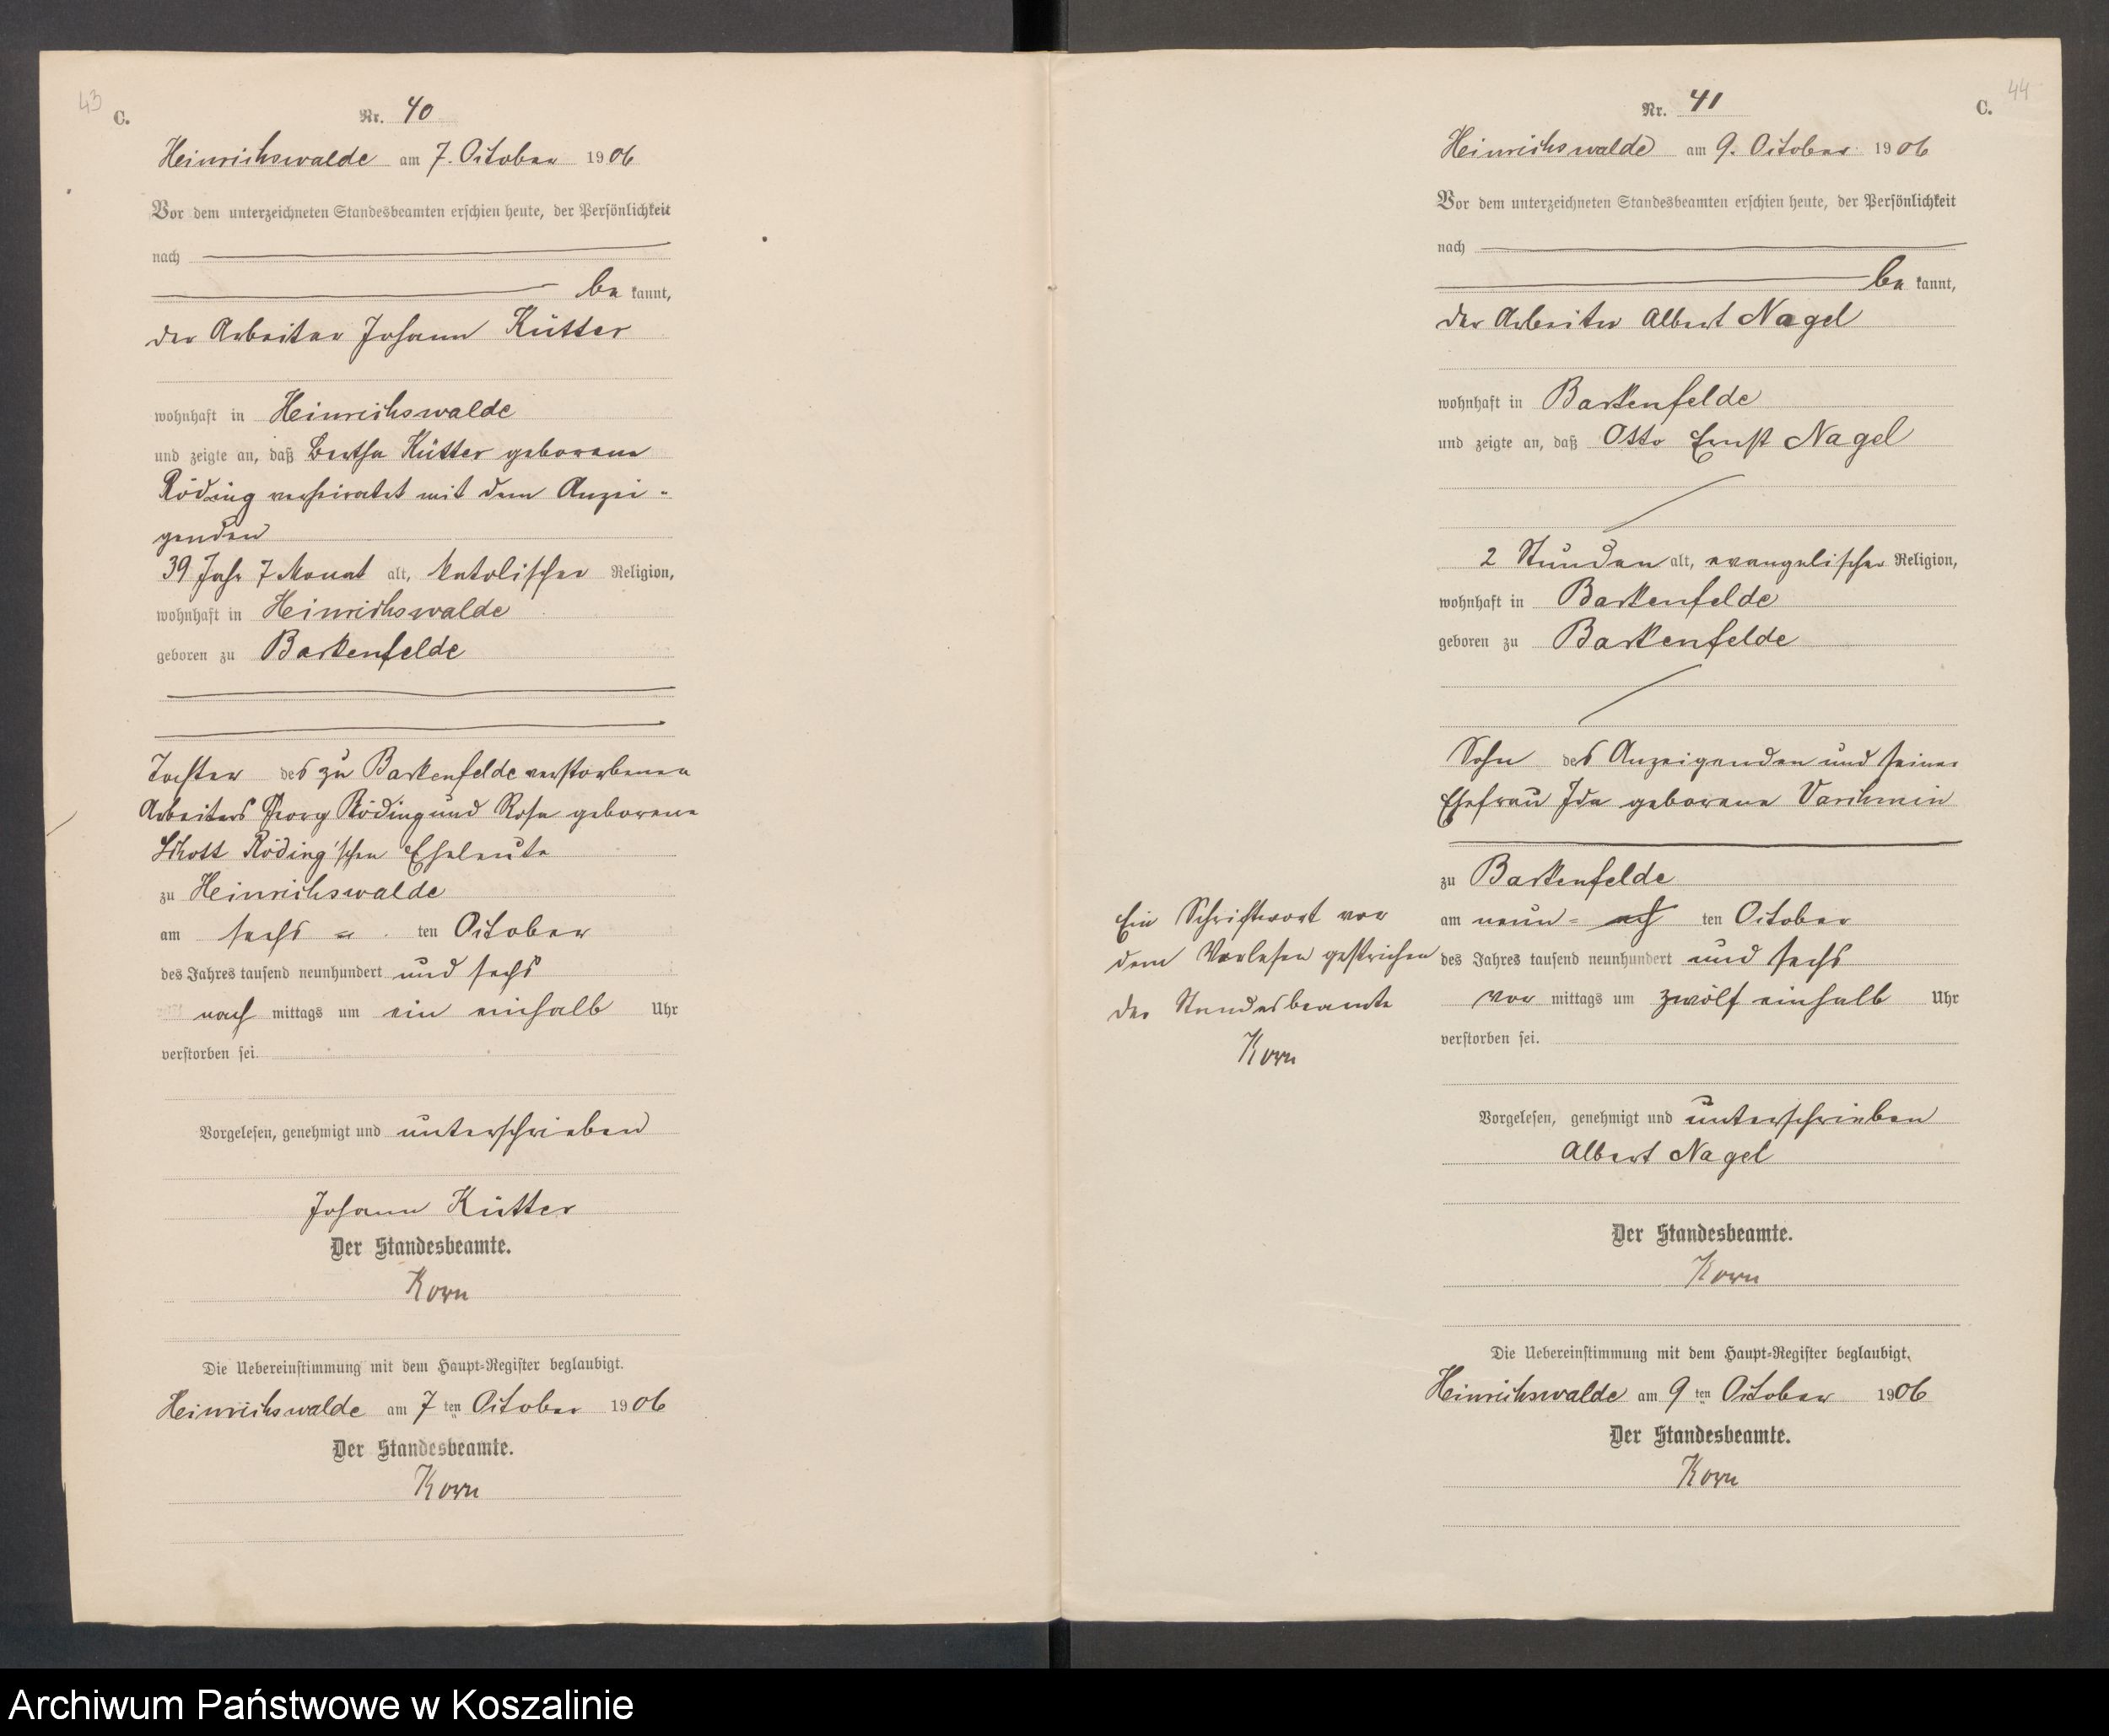 43
C.
Nr. 40
Heinrichswalde am 7. October 1906
Vor dem unterzeichneten Standesbeamten erschien heute, der Persönlichkeit
nach
be kannt,
der Arbeiter Johann Kütter
wohnhaft in Heinrichswalde
und zeigte an, daß Bertha Kütter geborene
Röding verheiratet mit dem Anzei-
genden
39 Jahr 7 Monat alt, katolischer Religion,
wohnhaft in Heinrichswalde
geboren zu Barkenfelde
Tochter des zu Barkenfelde verstorbenen
Arbeiters Georg Röding und Rosa geborene
Röding'schen Eheleute
zu Heinrichswalde
am sechs = ten October
des Jahres tausend neunhundert und sechs
nach mittags um ein einhalb Uhr
verstorben sei.
Vorgelesen, genehmigt und unterschrieben
Johann Kütter
Der Standesbeamte.
Korn
Die Uebereinstimmung mit dem Haupt-Register beglaubigt.
Heinrichswalde am 7 ten October 1906
Der Standesbeamte.
Korn
44
C.
Nr. 41
Heinrichswalde am 9. October 1906
Vor dem unterzeichneten Standesbeamten erschien heute, der Persönlichkeit
nach
be kannt,
der Arbeiter Albert Nagel
wohnhaft in Barkenfelde
und zeigte an, daß Otto Ernst Nagel
2 Stunden alt, evangelischer Religion,
wohnhaft in Barkenfelde
geboren zu Barkenfelde
Sohn des Anzeigenden und seiner
Ehefrau Ida geborene Varchmin
zu Barkenfelde
am neun = ten October
des Jahres tausend neunhundert und sechs
vor mittags um zwölf einhalb Uhr
verstorben sei.
Ein Schriftwort vor
dem Vorlesen gestrichen
der Standesbeamte
Korn
Vorgelesen, genehmigt und unterschrieben
Albert Nagel
Der Standesbeamte.
Korn
Die Uebereinstimmung mit dem Haupt-Register beglaubigt.
Heinrichswalde am 9 ten October 1906
Der Standesbeamte.
Korn
Archiwum Państwowe w Koszalinie